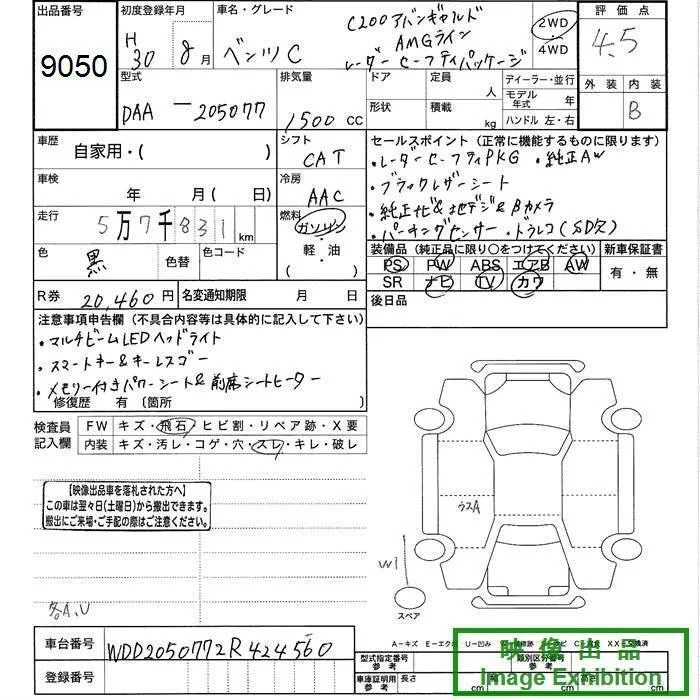 出品番号
9050
初度登録年月
H
30 8 月
車名・グレード
ベンツC
C200アバンギャルド
AMGライン
レーダーセーフティパッケージ
2WD
4WD
評価点
4.5
外装 内装
B
型式
DAA - 205077
排気量
1500 CC
ドア
形状
定員
人
積載
kg
ディーラー・並行
モデル年式 年
ハンドル 左・右
車歴
自家用・( )
シフト
CAT
車検
年 月( 日)
冷房
AAC
走行
5万7千831 km
燃料
ガソリン
・
軽・油
( )
色
黒
色替
色コード
R券
20,460 円
名変通知期限
月 日
セールスポイント(正常に機能するものに限ります)
・レーダーセーフティPKG ・純正AW
・ブラックレザーシート
・純正ナビ&地デジ&Bカメラ
・パーキングセンサー・ドラレコ(SD欠)
装備品(純正品に限り〇をつけてください)
PS PW ABS エアB AW
SR ナビ TV カワ
新車保証書
有・無
後日品
注意事項申告欄(不具合内容等は具体的に記入して下さい)
・マルチビームLEDヘッドライト
・スマートキー&キーレスゴー
・メモリー付きパワーシート&前席シートヒーター
修復歴 有〔箇所 〕
検査員
記入欄
FW キズ・飛石・ヒビ割・リペア跡・X要
内装 キズ・汚レ・コゲ・穴・スレ・キレ・破レ
【映像出品車を落札された方へ】
この車は翌々日(土曜日)から搬出できます。
搬出にご来場・ご手配の際はご注意ください。
各A、U
ウスA
W1
スペア
車台番号
WDD2050772R424560
登録番号
A-キズ E-エクボ U-凹み
XX-交換済
型式指定番号
参考
類別区分番号
参考
車庫証明用
参考
長さ
cm
cm
cm
映像出品
Image Exhibition